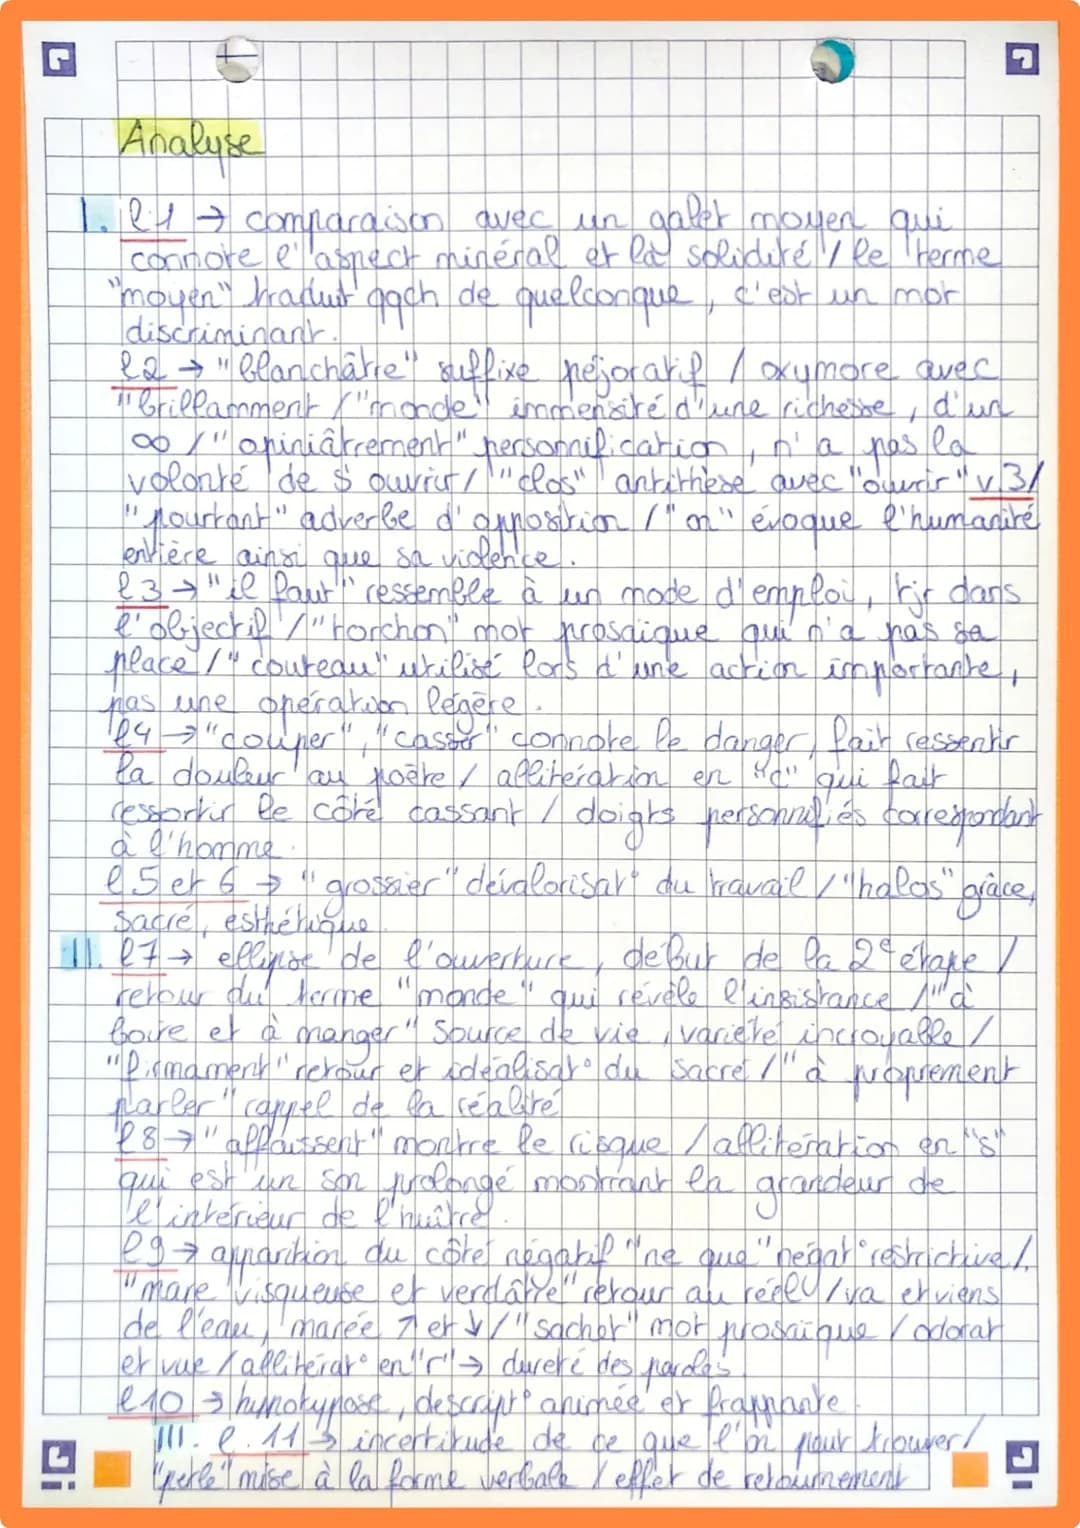 Analyse
I. l.1 → comparaison avec un galet moyen qui
connote l'aspect minéral et la solidité / le terme
"moyen" traduit qqch de quelconque, c'est un mot
discriminant.
l2 → "blanchâtre" suffixe péjoratif / oxymore avec
"brillamment / "monde" immensité d'une richesse, d'un
∞ / "opiniâtrement" personnification, n'a pas la
volonté de s'ouvrir / "clos" antithèse avec "ouvrir" v.3/
"pourtant" adverbe d'opposition / "on" évoque l'humanité
entière ainsi que sa violence.
l3 → "il faut" ressemble à un mode d'emploi, tjr dans
l'objectif / "torchon" mot prosaïque qui n'a pas sa
place / "couteau" utilisé lors d'une action importante,
pas une opération légère.
l4 → "couper", "casser" connote le danger, fait ressentir
la douleur au poète / allitération en "c" qui fait
ressortir le côté cassant / doigts personnifiés correspondant
à l'homme.
l5 et 6 → "grossier" dévalorisat° du travail / "halos" grâce,
sacré, esthétique.
II. l7 → ellipse de l'ouverture, début de la 2e étape /
retour du terme "monde" qui révèle l'insistance / "à
boire et à manger" source de vie, variété incroyable /
"firmament" retour et idéalisat° du sacré / "à proprement
parler" rappel de la réalité
l8 → "affaissent" montre le risque / allitération en "s"
qui est un son prolongé montrant la grandeur de
l'intérieur de l'huître.
l9 → apparition du côté négatif "ne que" négat° restrictive /
"mare visqueuse et verdâtre" retour au réel / va et viens
de l'eau, marée ↗ et ↙ / "sachet" mot prosaïque / odorat
et vue / allitérat° en "r" → dureté des paroles
l10 → hypotypose, descript° animée et frappante.
III. l.11 → incertitude de ce que l'on peut trouver /
"perle" mise à la forme verbale / effet de retournement